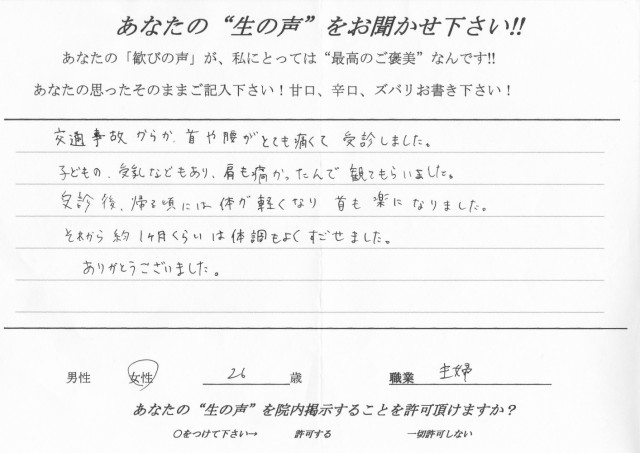 あなたの“生の声”をお聞かせ下さい!!
あなたの「歓びの声」が、私にとっては“最高のご褒美”なんです!!
あなたの思ったそのままご記入下さい！甘口、辛口、ズバリお書き下さい！
交通事故からか、首や腰がとても痛くて 受診しました。
子どもの、受乳などもあり、肩も痛かったんで 観てもらいました。
受診後、帰る頃には体が軽くなり 首も楽になりました。
それから 約1ヶ月くらいは体調もよくすごせました。
ありがとうございました。
男性 女性 26 歳 職業 主婦
あなたの“生の声”を院内掲示することを許可頂けますか？
○をつけて下さい→ 許可する 一切許可しない